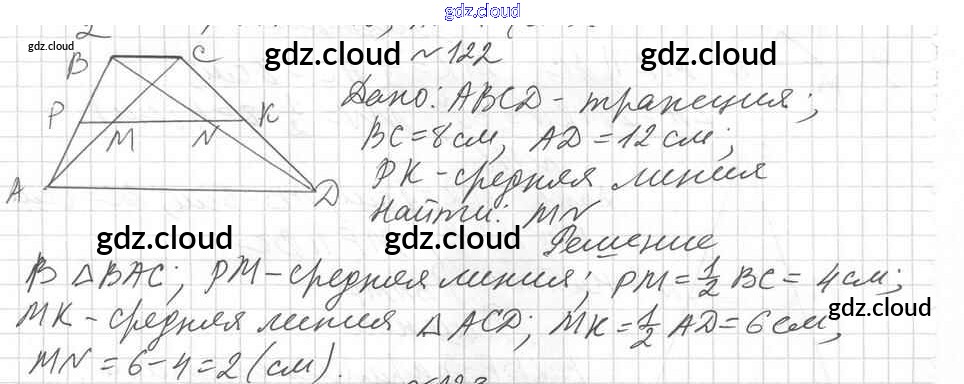 gdz.cloud
gdz.cloud
gdz.cloud
gdz.cloud
№ 122
B
C
P
M
N
K
A
D
Дано: ABCD - трапеция;
BC = 8 см, AD = 12 см;
PK - средняя линия
Найти: MN
gdz.cloud
gdz.cloud
Решение
В △BAC; PM - средняя линия; PM = 1/2 BC = 4 см;
gdz.cloud
MK - средняя линия △ ACD; MK = 1/2 AD = 6 см,
MN = 6 - 4 = 2 (см).